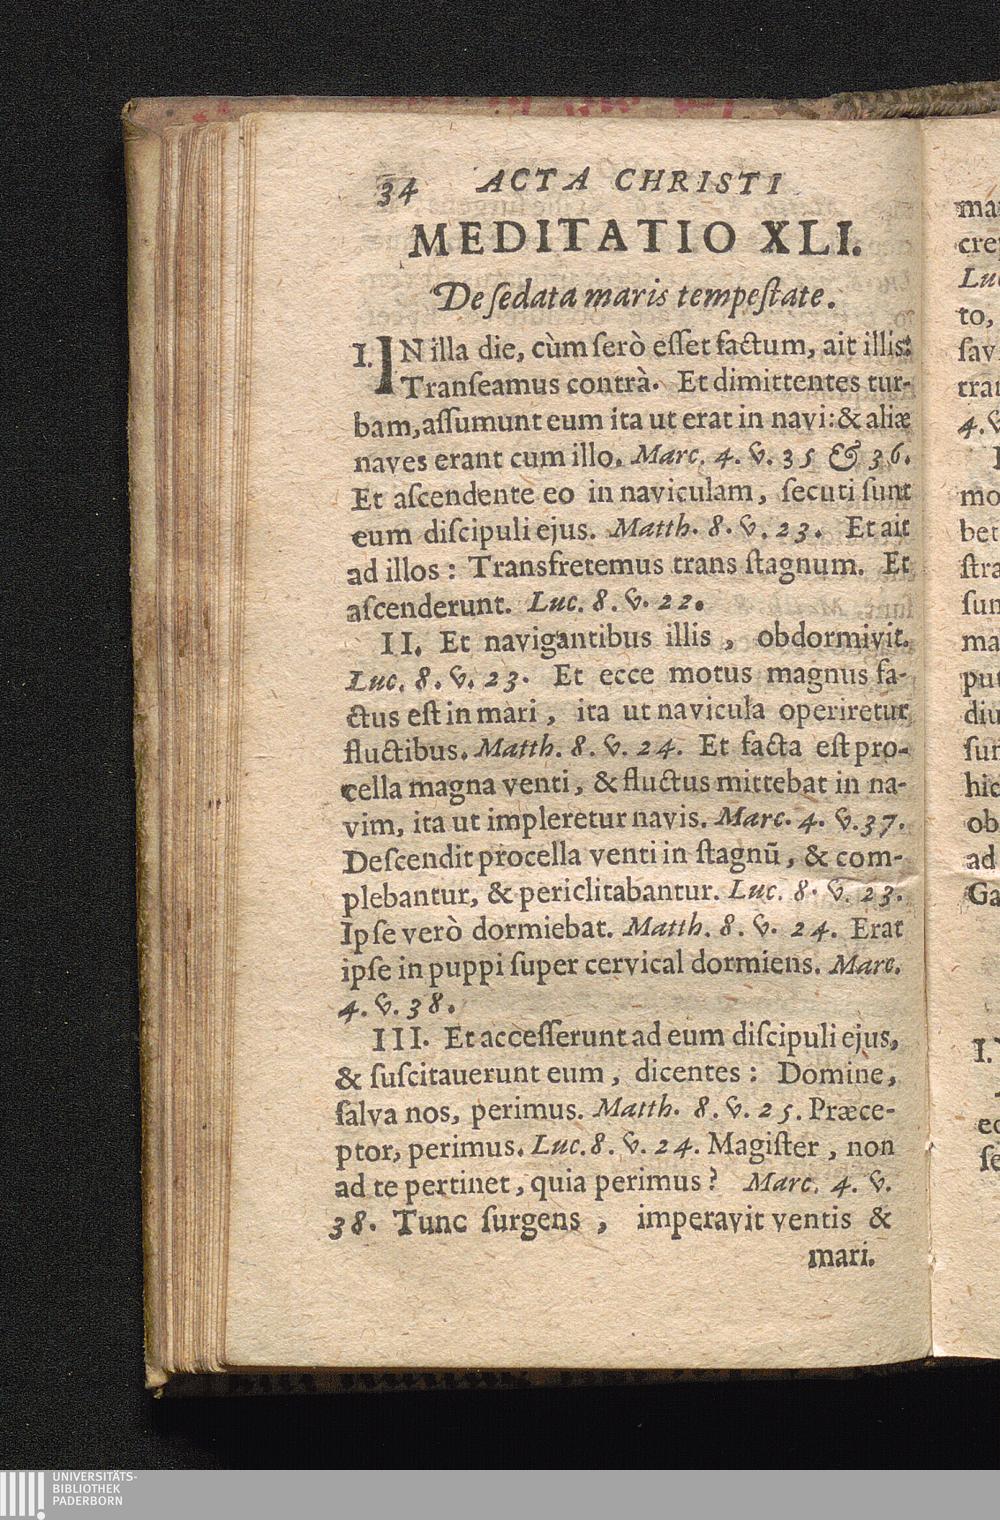 34 ACTA CHRISTI
MEDITATIO XLI.
De ſedata maris tempeſtate.
I. IN illa die, cùm ſerò eſſet factum, ait illis:
Tranſeamus contrà. Et dimittentes tur-
bam, aſſumunt eum ita ut erat in navi: & aliæ
naves erant cum illo. Marc. 4. v. 35 & 36.
Et aſcendente eo in naviculam, ſecuti ſunt
eum diſcipuli ejus. Matth. 8. v. 23. Et ait
ad illos: Transfretemus trans ſtagnum. Et
aſcenderunt. Luc. 8. v. 22.
II. Et navigantibus illis, obdormivit.
Luc. 8. v. 23. Et ecce motus magnus fa-
ctus eſt in mari, ita ut navicula operiretur
fluctibus. Matth. 8. v. 24. Et facta eſt pro-
cella magna venti, & fluctus mittebat in na-
vim, ita ut impleretur navis. Marc. 4. v. 37.
Deſcendit procella venti in ſtagnū, & com-
plebantur, & periclitabantur. Luc. 8. v. 23.
Ipſe verò dormiebat. Matth. 8. v. 24. Erat
ipſe in puppi ſuper cervical dormiens. Marc.
4. v. 38.
III. Et acceſſerunt ad eum diſcipuli ejus,
& ſuſcitauerunt eum, dicentes: Domine,
ſalva nos, perimus. Matth. 8. v. 25. Præce-
ptor, perimus. Luc. 8. v. 24. Magiſter, non
ad te pertinet, quia perimus? Marc. 4. v.
38. Tunc ſurgens, imperavit ventis &
mari.
UNIVERSITÄTS-
BIBLIOTHEK
PADERBORN